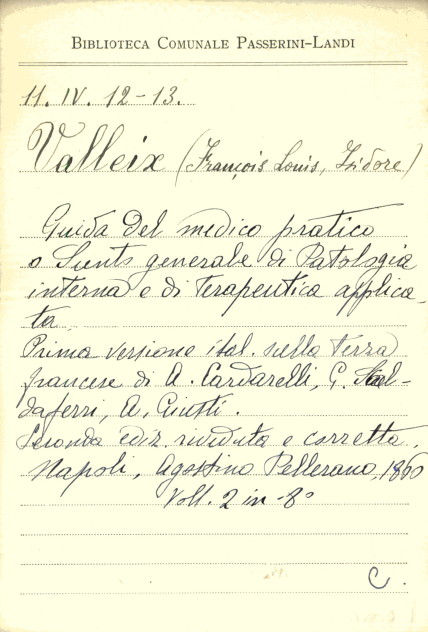 BIBLIOTECA COMUNALE PASSERINI-LANDI
11. IV. 12-13.
Valleix (François Louis, Isidore)
Guida del medico pratico
o Sunto generale di Patologia
interna e di Terapeutica applica-
ta
Prima versione ital. sulla terza
francese di A. Cardarelli, G.
daferri, A. Ciutti.
Seconda ediz. riveduta e corretta.
Napoli, Agostino Pellerano, 1860
Voll. 2 in -8°
C.